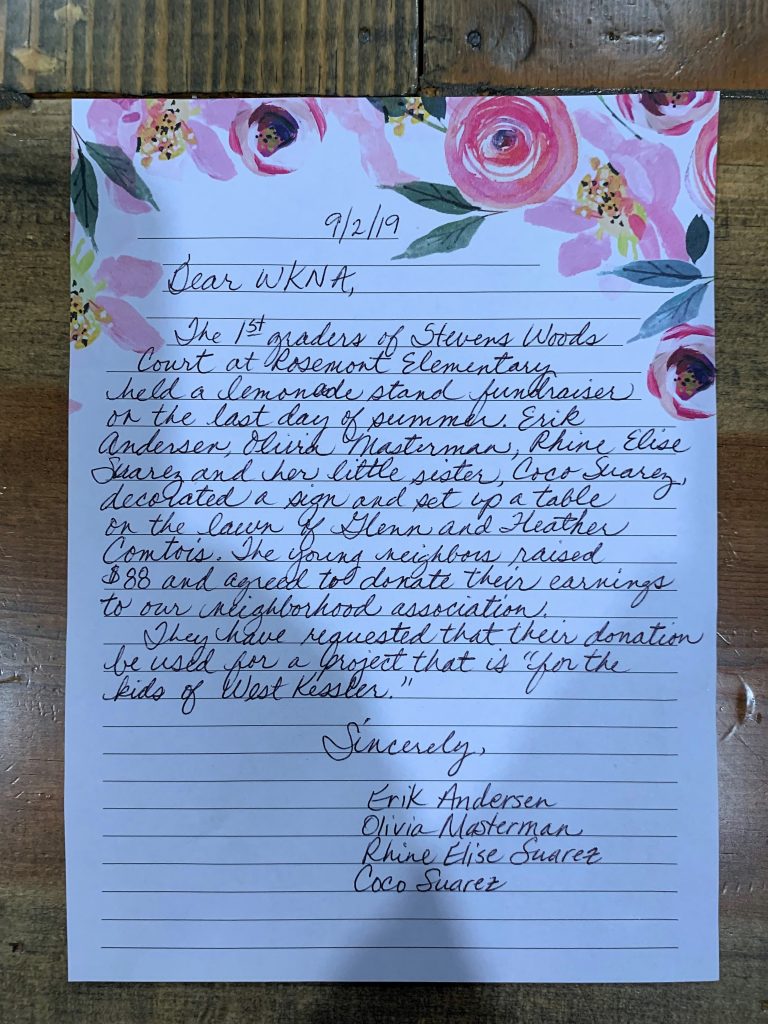 9/2/19
Dear WKNA,
The 1st graders of Stevens Woods
Court at Rosemont Elementary
held a lemonade stand fundraiser
on the last day of summer. Erik
Andersen, Olivia Masterman, Rhine Elise
Suarez and her little sister, Coco Suarez,
decorated a sign and set up a table
on the lawn of Glenn and Heather
Comtois. The young neighbors raised
$88 and agreed to donate their earnings
to our neighborhood association.
They have requested that their donation
be used for a project that is "for the
kids of West Kessler."
Sincerely,
Erik Andersen
Olivia Masterman
Rhine Elise Suarez
Coco Suarez